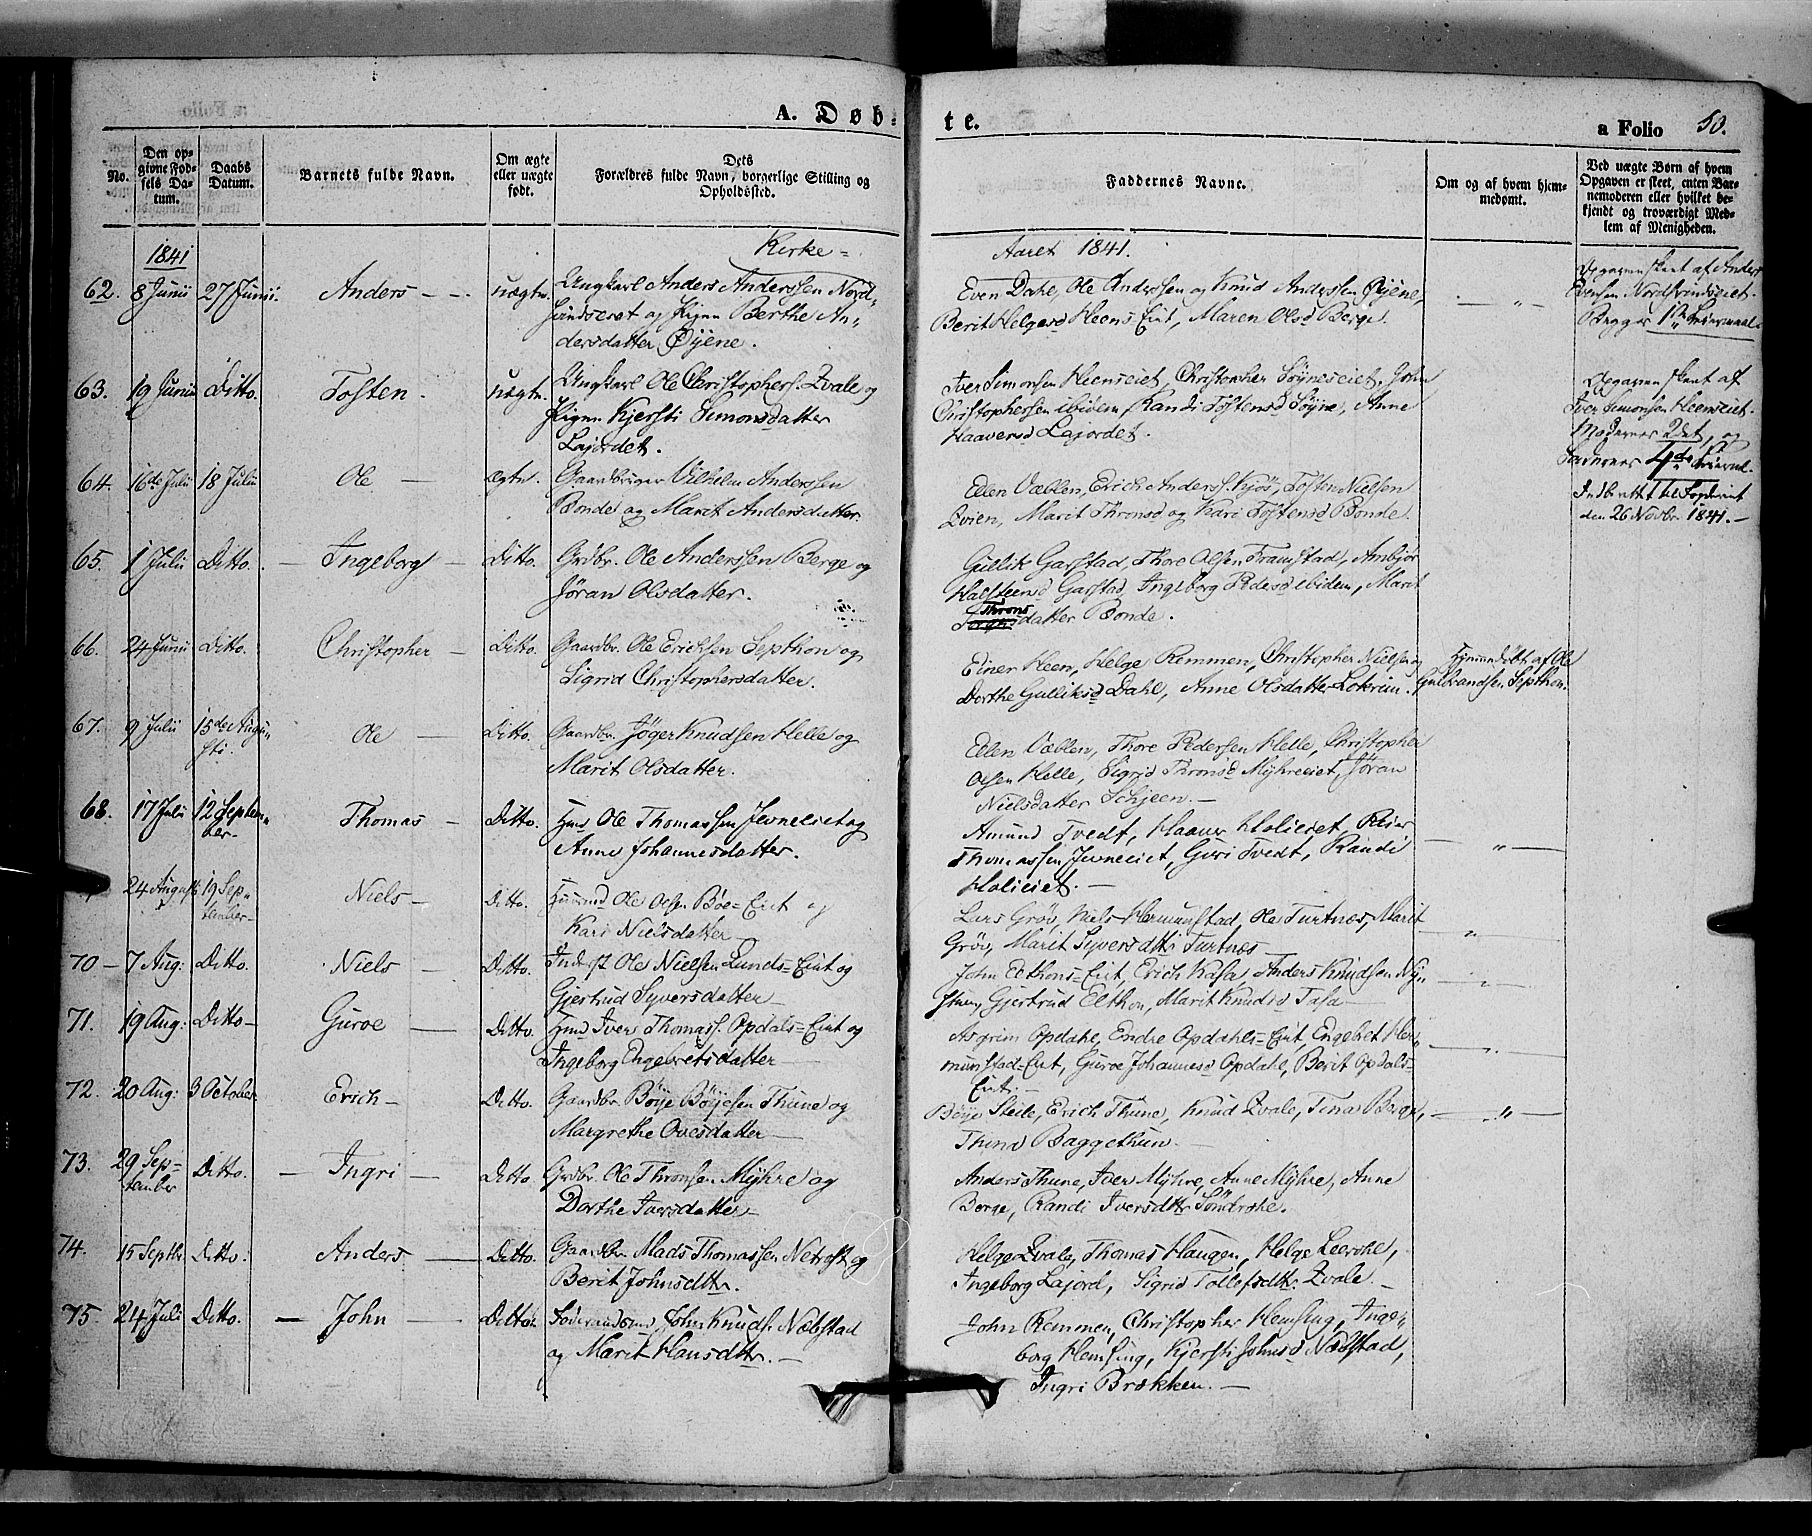 A. Døb-
te.
a Folio 50.
No.
Den opgivne Fødsels Datum.
Daabs Datum.
Barnets fulde Navn.
Om ægte eller uægte født.
Dets Forældres fulde Navn, borgerlige Stilling og Opholdssted.
Faddernes Navne.
Om og af hvem hjemmedømt.
Ved uægte Børn af hvem
Opgaven er skeet, enten Bar-
nemoderen eller hvilket be-
kjendt og troværdigt Med-
lem af Menigheden.
1841
Kirke=
Aaret 1841.
62. 8 Junii 27 Junii. Anders uægte. Ungkarl Anders Anderssen Nord-
og Pigen Berthe An-
dersdatter Øyene.
Even Dahl, Ole Anderssen og Knud Anderssen Øyene,
Berit Helgesd Heens Eiet, Maren Olsd Berge.
Opgaven skeet af Anders
Evensen Nordsvindseiet.
Begges 1ste Leiermaal
63. 19 Junii Ditto. Tosten. uægte. Ungkarl Ole Christophers. Qvale og
Pigen Kjersti Simonsdatter
Lajordet.
Iver Simonsen Heenseiet, Christopher Søyneseiet, John
Christophersen ibidem, Randi Tostensd Søyne, Anne
Haaversd Lajordet.
Opgaven skeet af
Iver Simonsen Heenseiet.
Moderens 2det, og
Faderens 4de
Indberettet til Fogderiet
den 26 Novbr. 1841.
64. 16de Julii 18 Julii Ole ægte. Gaardbruger Vilhelm Anderssen
Bonde og Marit Andersdatter.
Eden Væblen, Erich Anderss. Kjøs, Tosten Nielsen
Qvien, Marit Thronsd og Kari Tostensd Bonde.
65. 1 Julii Ditto. Ingeborg Ditto. Grdbr. Ole Anderssen Berge og
Jøran Olsdatter.
Gullik Garstad, Thore Olsen Framstad, Ambjør
Halsteensd Garstad, Ingeborg Pedersd ibidem, Marit
Throns
datter Bonde.
66. 24 Junii Ditto. Christopher Ditto. Gaardbr. Ole Erichsen Septhon og
Sigrid Christophersdatter.
Einer Heen, Helge Remmen, Christopher Nielsen og
Dorthe Gulliksd Dahl, Anne Olsdatter Lokrim.
Hjemmedøbt af Ole
Gulbrandsen Septhon.
67. 9 Julii 15de Augu-
sti. Ole Ditto. Gaardbr. Jøger Knudsen Helle og
Marit Olsdatter.
Eden Væblen, Thore Pedersen Helle, Christopher
Olsen Helle, Sigrid Thronsd Myhreeiet, Jøran
Nielsdatter Schjeen.
68. 17 Julii 12 Septem-
ber Thomas Ditto. Hmd Ole Thomassen Jevneeiet og
Anne Johannesdatter.
Amund Tvedt, Haaver Holieiet, Reier
Thomassen Jevneeiet, Guri Tvedt, Randi
Holieiet.
24 August 19 Sep-
tember Niels Ditto. Huusmd Ole Olsen Bøe-Eiet og
Kari Nielsdatter
Lars Grøv, Niels Hermunstad, Ole Turtnes, Marit
Grøv, Marit Syversdtr Turtnes
70 7 Aug: Ditto. Niels Ditto. Inderst Ole Nielsen Lunds-Eiet og
Gjertrud Syversdatter
John Elthons-Eiet, Erich Kasa, Anders Knudsen Ny-
stuen, Gjertrud Elthon, Marit Knudsd Tasa
71. 19 Aug: Ditto Guroe Ditto. Hmd Iver Thomass. Opdals-Eiet og
Ingeborg Engebretsdatter
Asgrim Opdahl, Endre Opdahls-Eiet, Engebret Her-
munstad-Eiet, Guroe Johannesd Opdahl, Berit Opdals-
Eiet.
72. 20 Aug: 3 October Erich Ditto. Gaardbr. Bøye Bøyesen Thune og
Margrethe Ovesdatter
Bøye Steile, Erich Thune, Knud Qvale, Tina Berge,
Thina Baggethun.
73. 29 Sep-
tember Ditto. Ingri Ditto. Grdbr. Ole Thronsen Myhre og
Dorthe Iversdatter
Anders Thune, Iver Myhre, Anne Myhre, Anne
Berge, Randi Iversdtr Søndrohe.
74. 15 Septbr. Ditto. Anders Ditto. Gaardbr. Mads Thomassen Nerøst og
Berit Johnsdtr.
Helge Qvale, Thomas Haugen, Helge Leerohe,
Ingeborg Lajord, Sigrid Tollefsdtr. Qvale.
75. 24 Juli Ditto. John Ditto. Føderaadsmd John Knuds. Næbstad
og Marit Hansdtr.
John Remmen, Christopher Hemsing, Inge-
borg Hemsing, Kjersti Johnsd Næbstad,
Ingri Brækken.